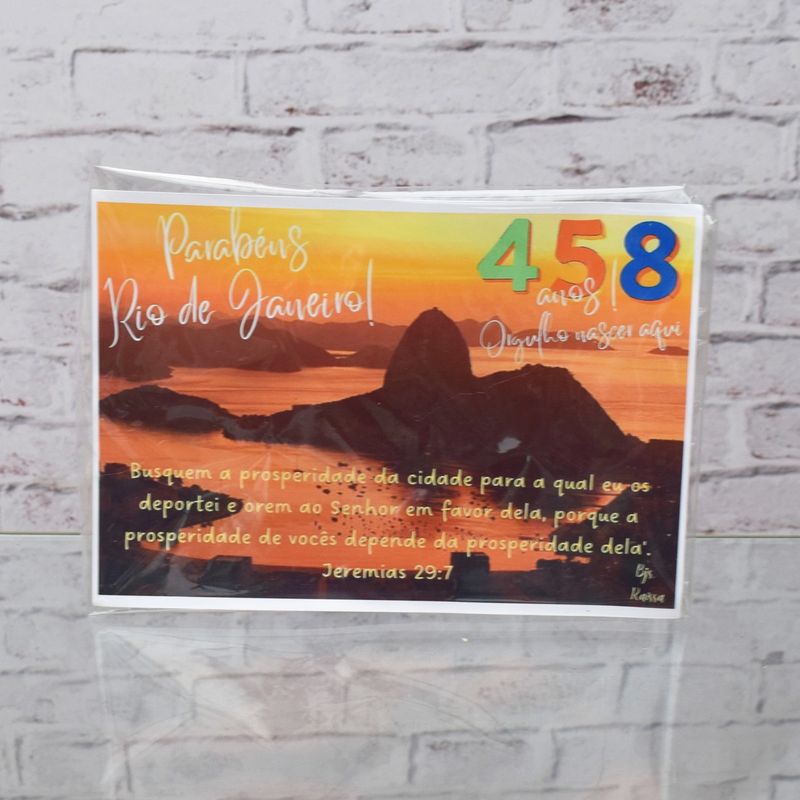 Parabéns
Rio de Janeiro!
458
anos!
Orgulho nascer aqui
Busquem a prosperidade da cidade para a qual eu os
deportei e orem ao Senhor em favor dela, porque a
prosperidade de vocês depende da prosperidade dela".
Jeremias 29:7
Bjs
Raissa